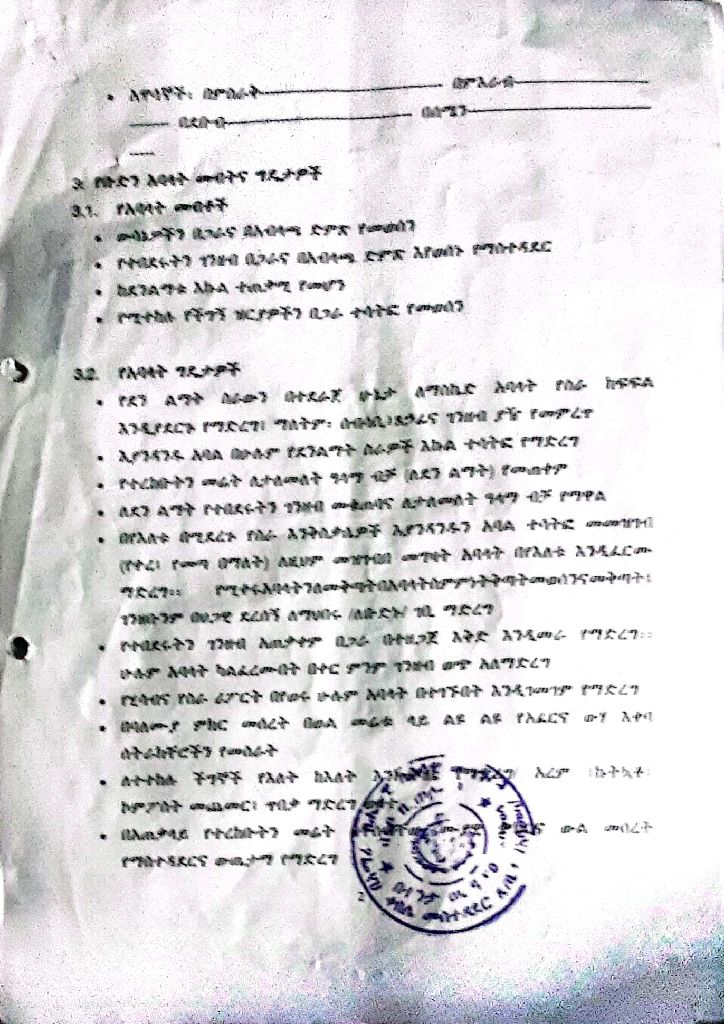 • አዋሳኞች፡ በምስራቅ ------------ በምእራብ ------------
------ በደቡብ ------------ በሰሜን ------------
----
3. የቡድን አባላት መብትና ግዴታዎች
3.1. የአባላት መብቶች
• ውሳኔዎችን በጋራና በአብላጫ ድምጽ የመወሰን
• የተበደሩትን ገንዘብ በጋራና በአብላጫ ድምጽ እየወሰኑ የማስተዳደር
• ከደንልማቱ እኩል ተጠቃሚ የመሆን
• የሚተከሉ የችግኝ ዝርያዎችን በጋራ ተሳትፎ የመወሰን
3.2. የአባላት ግዴታዎች
• የደን ልማት ስራውን በተደራጀ ሁኔታ ለማስኬድ አባላት የስራ ክፍፍል
እንዲያደርጉ የማድረግ፣ ማለትም፡ ሰብሳቢ፣ ጸሃፊና ገንዘብ ያዥ የመምረጥ
• እያንዳንዱ አባል በሁሉም የደንልማት ስራዎች እኩል ተሳትፎ የማድረግ
• የተረከቡትን መሬት ለታለመለት ዓላማ ብቻ (ለደን ልማት) የመጠቀም
• ለደን ልማት የተበደሩትን ገንዘብ መቆጠብና ለታለመለት ዓላማ ብቻ የማዋል
• በየእለቱ በሚደረጉ የስራ እንቅስቃሴዎች እያንዳንዱን አባል ተሳትፎ መመዝገብ
(የቀረ፣ የመጣ በማለት) ለዚህም መዝገብ በመያዝ አባላት በየእለቱ እንዲፈርሙ
ማድረግ፡፡ የሚቀሩ አባላትን ለመቅጣት በአባላት ስምምነት ቅጣት መወሰንና መቅጣት፣
ገንዘቡንም በህጋዊ ደረሰኝ ለማህበሩ /ለቡድኑ/ ገቢ ማድረግ
• የተበደሩትን ገንዘብ አጠቃቀም በጋራ በተዘጋጀ እቅድ እንዲመራ የማድረግ፡፡
ሁሉም አባላት ካልፈረሙበት በቀር ምንም ገንዘብ ወጭ አለማድረግ
• የሂሳብና የስራ ሪፖርት በየወሩ ሁሉም አባላት በተገኙበት እንዲገመገም የማድረግ
• በባለሙያ ምክር መሰረት በወል መሬቱ ላይ ልዩ ልዩ የአፈርና ውሃ እቀባ
ስትራክቸሮችን የመስራት
• ለተተከሉ ችግኞች የእለት ከእለት የማድረግ/ አረም ፣ኩትኳቶ፣
ኮምፖስት መጨመር፣ ጥበቃ ማድረግ
• በአጠቃላይ የተረከቡትን መሬት ውል መሰረት
የማስተዳደርና ውጤታማ የማድረግ
2